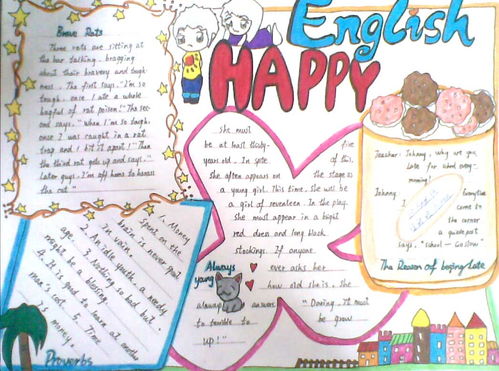 English
HAPPY
Brave Rats
Three rats are sitting at
the bar talking, bragging
about their bravery and tough-
ness. The first says, "I'm so
tough, once I ate a whole
bagful of rat poison!" The sec-
ond says, "When I'm so tough,
once I was caught in a rat
trap and I bit it apart!" Then
the third rat gets up and says, "
Later guys, I'm off home to harass
the cat."
she must
be at least thirty-five
years-old. In spite of this,
she often appears on the stage as
a young girl. This time, she will be
a girl of seventeen. In the play,
she must appear in a bright
red dress and long black
stockings. If anyone
ever asks her
how old she is, she
always answers,
"Darling, it must
be
terrible to be grow
up!"
Always
young
Teacher: Johnny, why are you
late for school every
morning?
Johnny
Everytime
come to
the corner
a guidepost
says, "School - Go Slow".
The Reason of being Late
1. Money spent on the
brain is never spent
in vain.
2. An idle youth, a needy
age.
3. Nothing so bad but
might be a blessing.
4. It is good to learn at another
man's cost.
5. Time
is money.
Proverbs